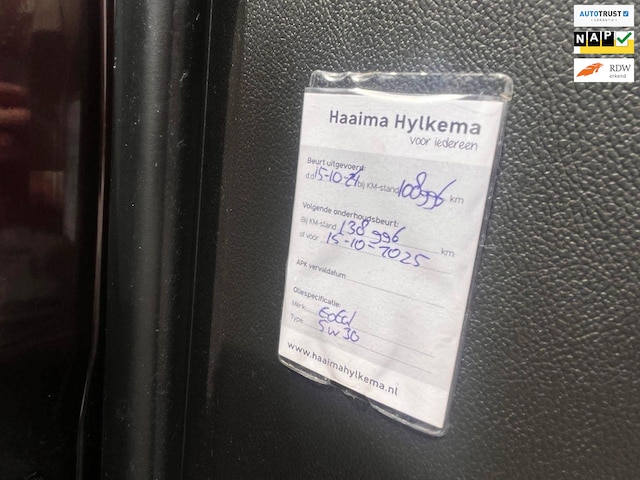 AUTOTRUST
GARANTIE
NAP
RDW
erkend
Haaima Hylkema
voor iedereen
Beurt uitgevoerd:
d.d. 15-10-24 bij KM-stand 108996 km
Volgende onderhoudsbeurt:
Bij KM-stand 138996 km
of voor 15-10-2025
APK vervaldatum
Oliespecificatie:
Merk
Type 5W30
www.haaimahylkema.nl